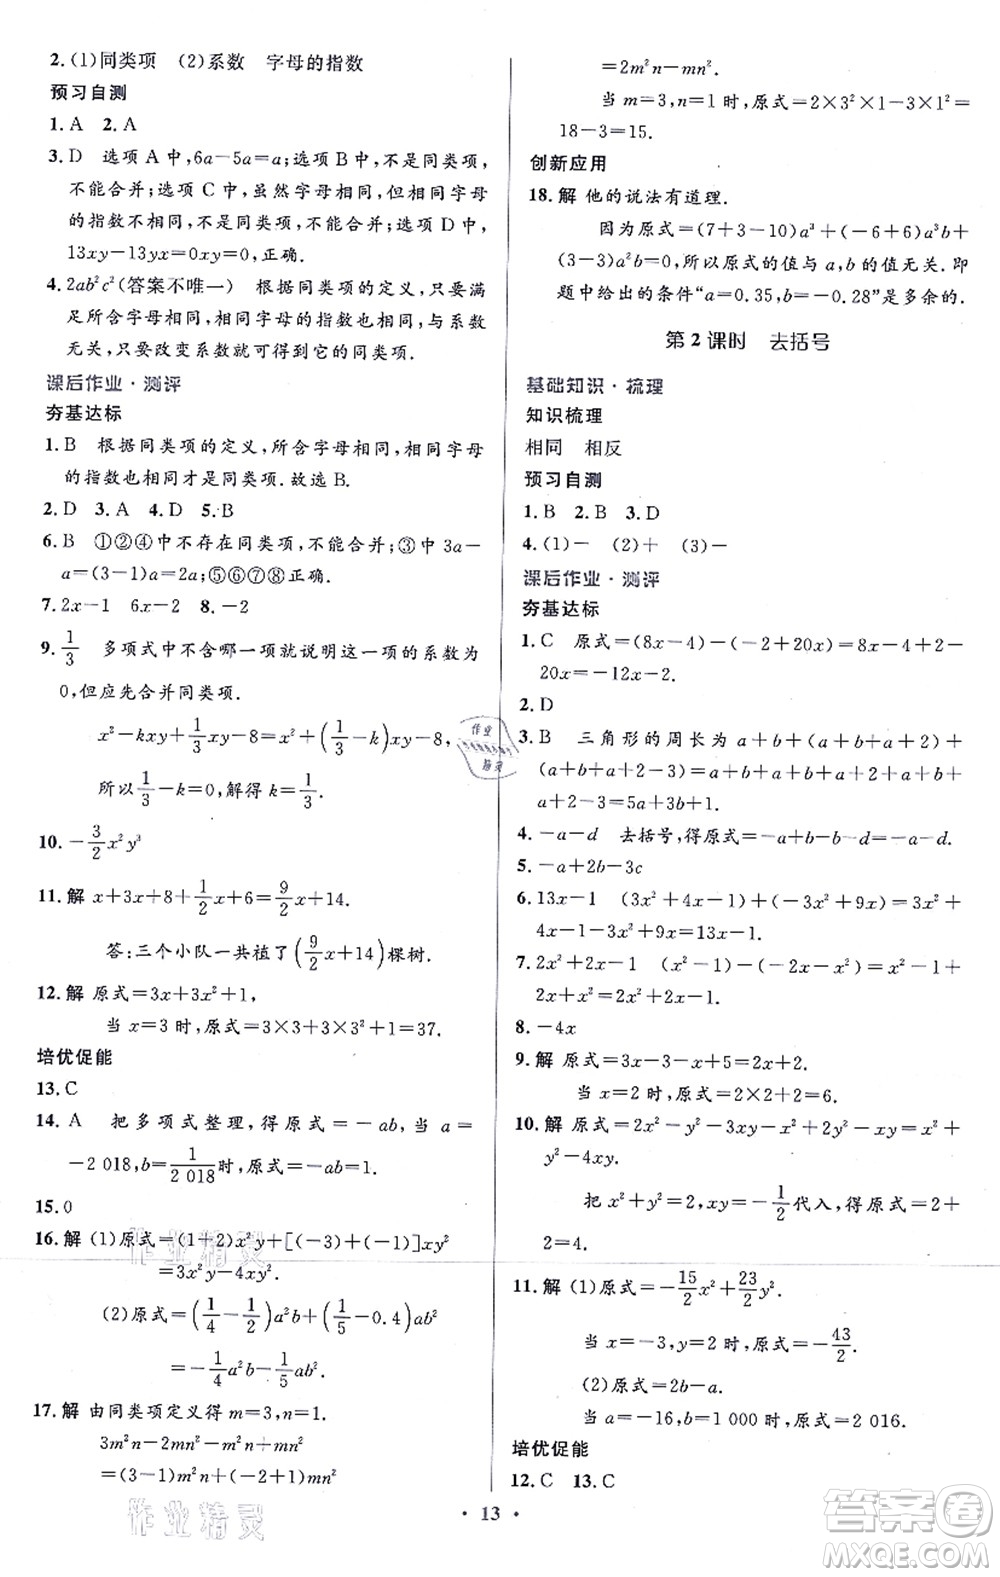 2.(1)同类项　(2)系数　字母的指数
预习自测
1.A　2.A
3.D　选项A中,6a-5a=a;选项B中,不是同类项,
不能合并;选项C中,虽然字母相同,但相同字母
的指数不相同,不是同类项,不能合并;选项D中,
13xy-13yx=0,正确.
4.2ab²c²(答案不唯一)　根据同类项的定义,只要满
足所含字母相同,相同字母的指数也相同,与系数
无关,只要改变系数就可得到它的同类项.
课后作业·测评
夯基达标
1.B　根据同类项的定义,所含字母相同,相同字母
的指数也相同才是同类项.故选B.
2.D　3.A　4.D　5.B
6.B　①②④中不存在同类项,不能合并;③中3a-
a=(3-1)a=2a;⑤⑥⑦⑧正确.
7.2x-1　6x-2　8.-2
9.1/3　多项式中不含哪一项就说明这一项的系数为
0,但应先合并同类项.
x²-kxy+1/3xy-8=x²+(1/3-k)xy-8,
所以1/3-k=0,解得k=1/3.
10.-3/2x²y³
11.解 x+3x+8+1/2x+6=9/2x+14.
答:三个小队一共植了(9/2x+14)棵树.
12.解 原式=3x+3x²+1,
当x=3时,原式=3×3+3×3²+1=37.
培优促能
13.C
14.A　把多项式整理,得原式=-ab,当a=
-2 018,b=1/2 018时,原式=-ab=1.
15.0
16.解 (1)原式=(1+2)x²y+[(-3)+(-1)]xy²
=3x²y-4xy².
(2)原式=(1/4-1/2)a²b+(1/5-0.4)ab²
=-1/4a²b-1/5ab².
17.解 由同类项定义得m=3,n=1.
3m²n-2mn²-m²n+mn²
=(3-1)m²n+(-2+1)mn²
=2m²n-mn².
当m=3,n=1时,原式=2×3²×1-3×1²=
18-3=15.
创新应用
18.解 他的说法有道理.
因为原式=(7+3-10)a³+(-6+6)a³b+
(3-3)a²b=0,所以原式的值与a,b的值无关.即
题中给出的条件“a=0.35,b=-0.28”是多余的.
第2课时　去括号
基础知识·梳理
知识梳理
相同　相反
预习自测
1.B　2.B　3.D
4.(1)-　(2)+　(3)-
课后作业·测评
夯基达标
1.C　原式=(8x-4)-(-2+20x)=8x-4+2-
20x=-12x-2.
2.D
3.B　三角形的周长为a+b+(a+b+a+2)+
(a+b+a+2+a-1)=a+b+a+b+a+2+a+
b+a+2+a-1=5a+3b+... 
a+2-3=5a+3b+1.
4.-a-d　去括号,得原式=-a+b-b-d=-a-d.
5.-a+2b-3c
6.13x-1　(3x²+4x-1)-(3x²-9x)=3x²+
4x-1-3x²+9x=13x-1.
7.2x²+2x-1　(x²-1)-(-x²-2x)=x²-1+
x²+2x=2x²+2x-1.
8.-4x
9.解 原式=3x-3-x+5=2x+2.
当x=2时,原式=2×2+2=6.
10.解 原式=3x²-y²-3xy-x²+2y²-xy=2x²+
y²-4xy.
把x²+y²=2,xy=-1/2代入,得原式=2+
2=4.
11.解 (1)原式=-15/2x²+23/2y².
当x=-3,y=2时,原式=-43/2.
(2)原式=2b-a.
当a=-16,b=1 000时,原式=2 016.
培优促能
12.C　13.C
· 13 ·
作业精灵
作业精灵
作业
精灵
答案卷
MXQE.COM